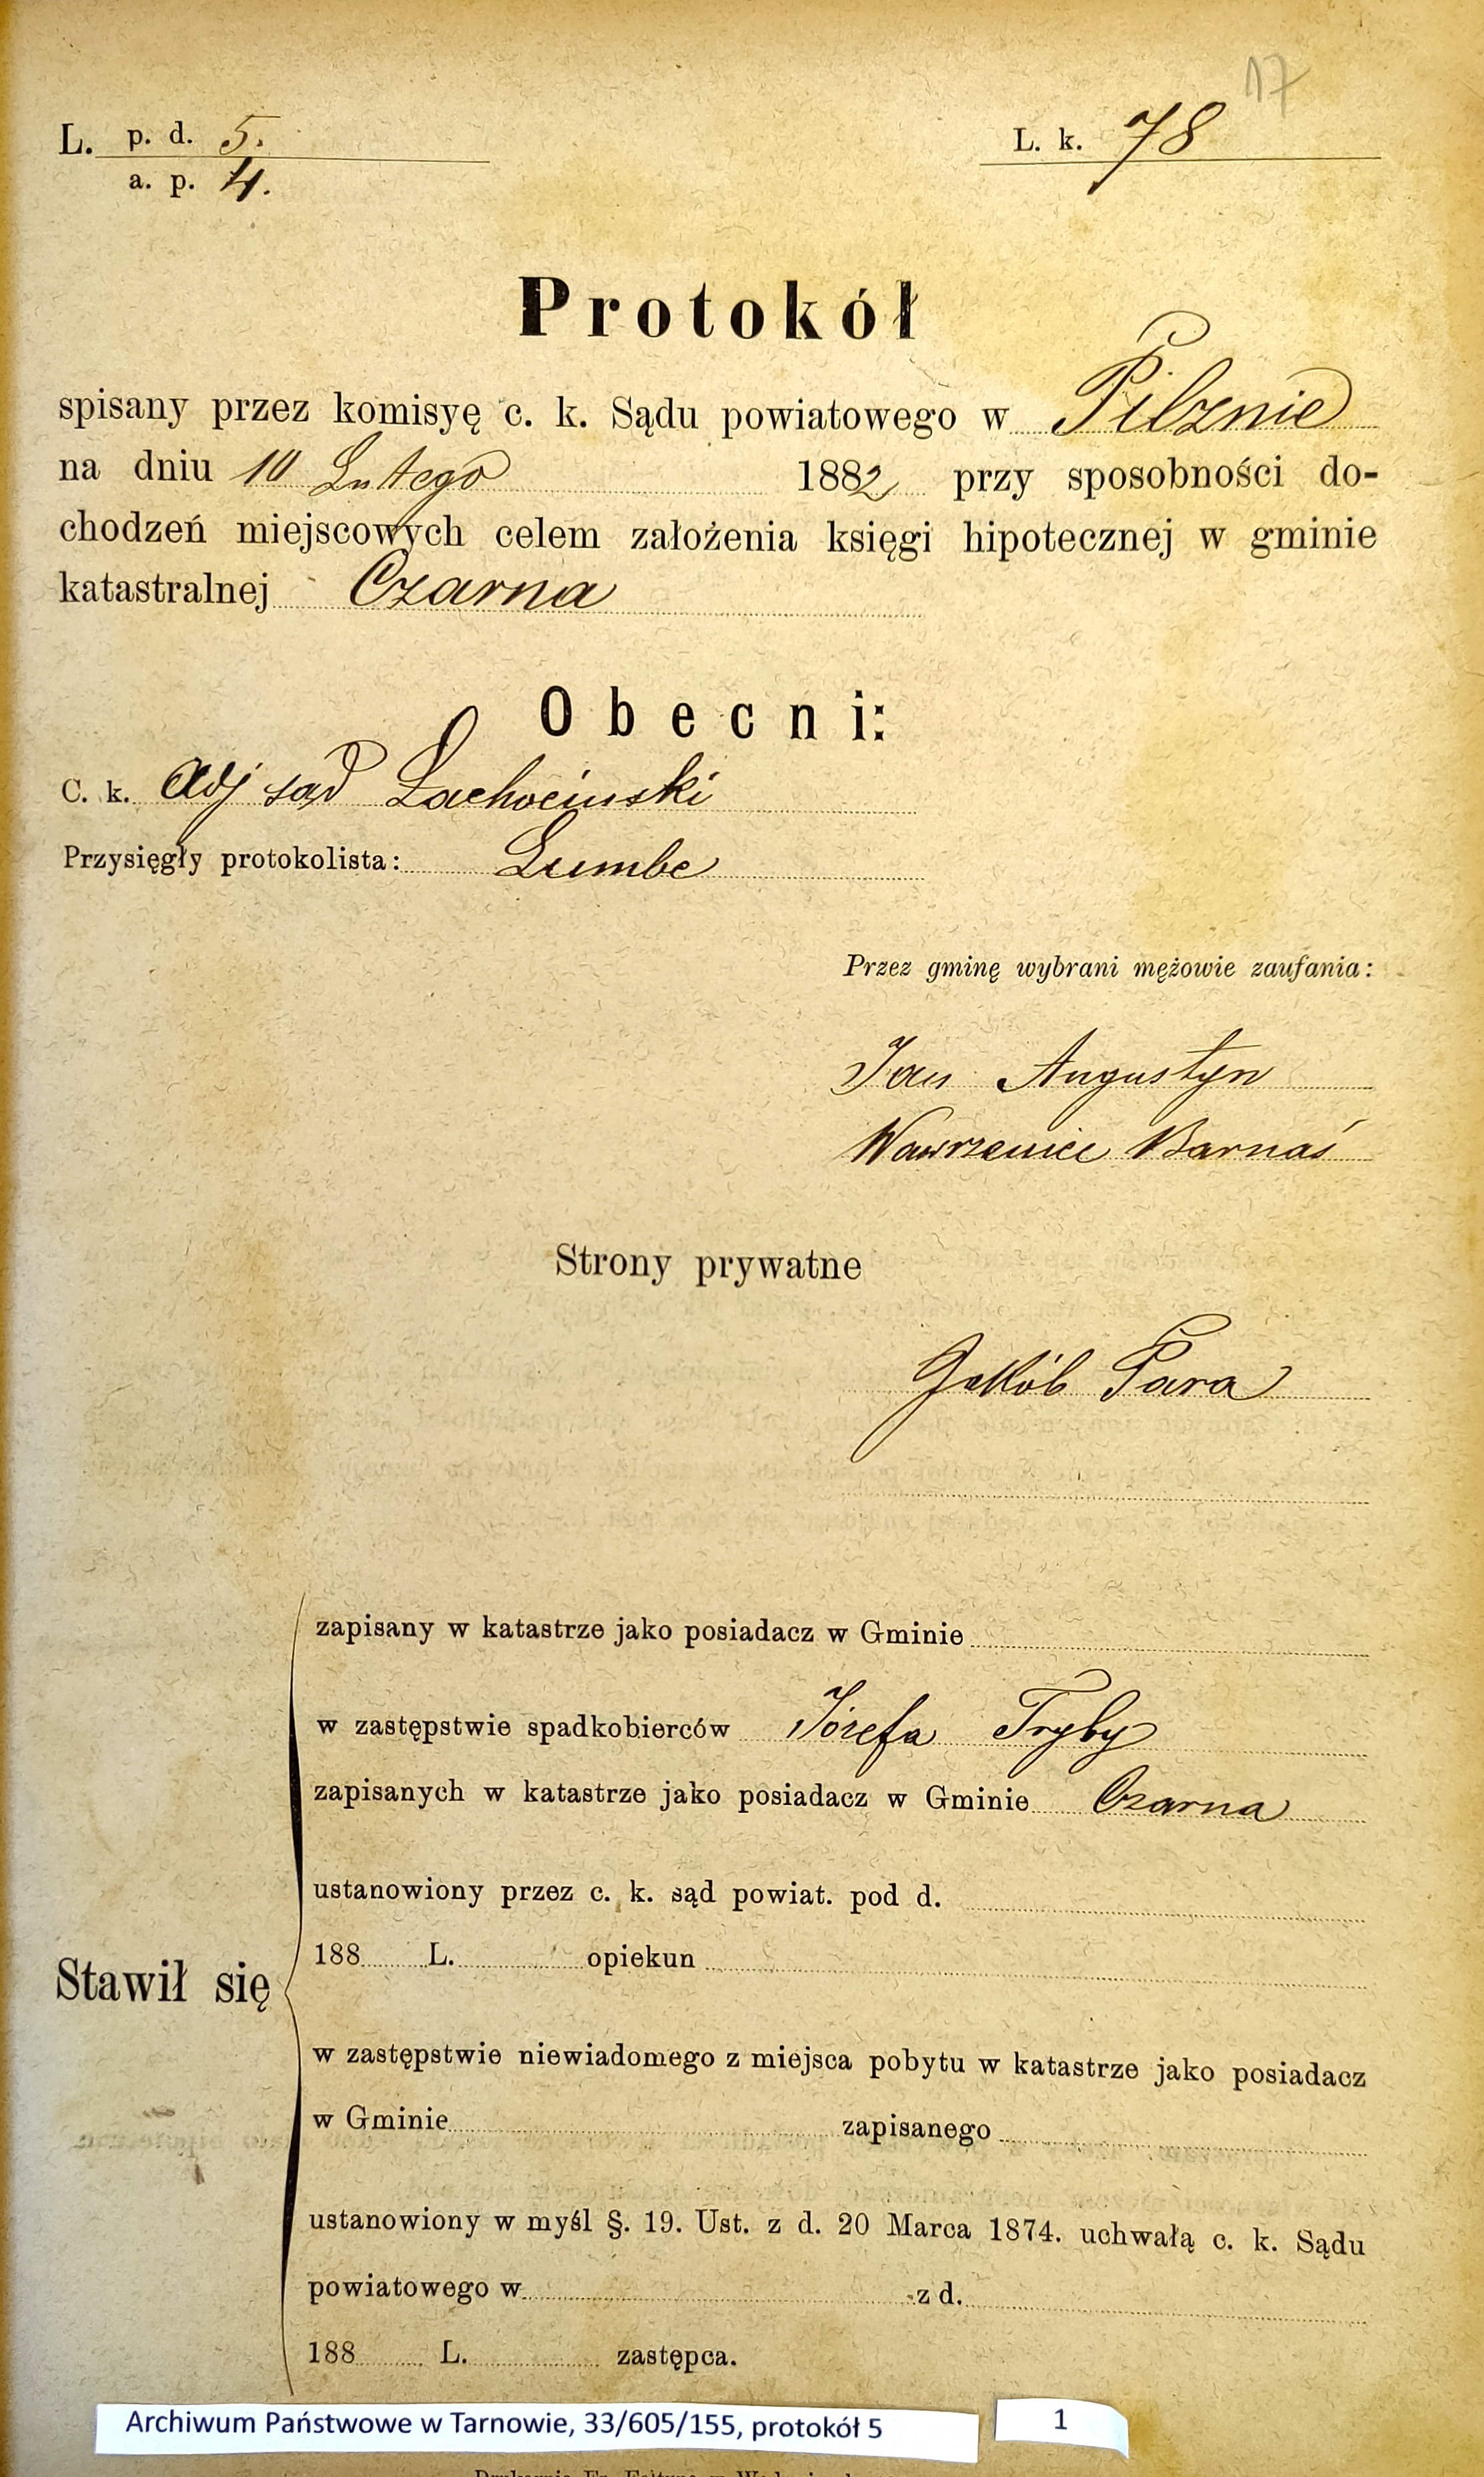 17
L. p. d. 5.
a. p. 4.
L. k. 78
Protokół
spisany przez komisyę c. k. Sądu powiatowego w Pilznie
na dniu 10 Lutego 1882 przy sposobności do-
chodzeń miejscowych celem założenia księgi hipotecznej w gminie
katastralnej Czarna
Obecni:
C. k. Adj sąd Lachociński
Przysięgły protokolista: Lumbe
Przez gminę wybrani mężowie zaufania:
Jan Augustyn
Wawrzeniec Barnaś
Strony prywatne
Jakób Para
zapisany w katastrze jako posiadacz w Gminie
w zastępstwie spadkobierców Józefa Tryby
zapisanych w katastrze jako posiadacz w Gminie Czarna
ustanowiony przez c. k. sąd powiat. pod d.
188 L. opiekun
Stawił się
w zastępstwie niewiadomego z miejsca pobytu w katastrze jako posiadacz
w Gminie zapisanego
ustanowiony w myśl §. 19. Ust. z d. 20 Marca 1874. uchwałą c. k. Sądu
powiatowego w z d.
188 L. zastępca.
Archiwum Państwowe w Tarnowie, 33/605/155, protokół 5
1